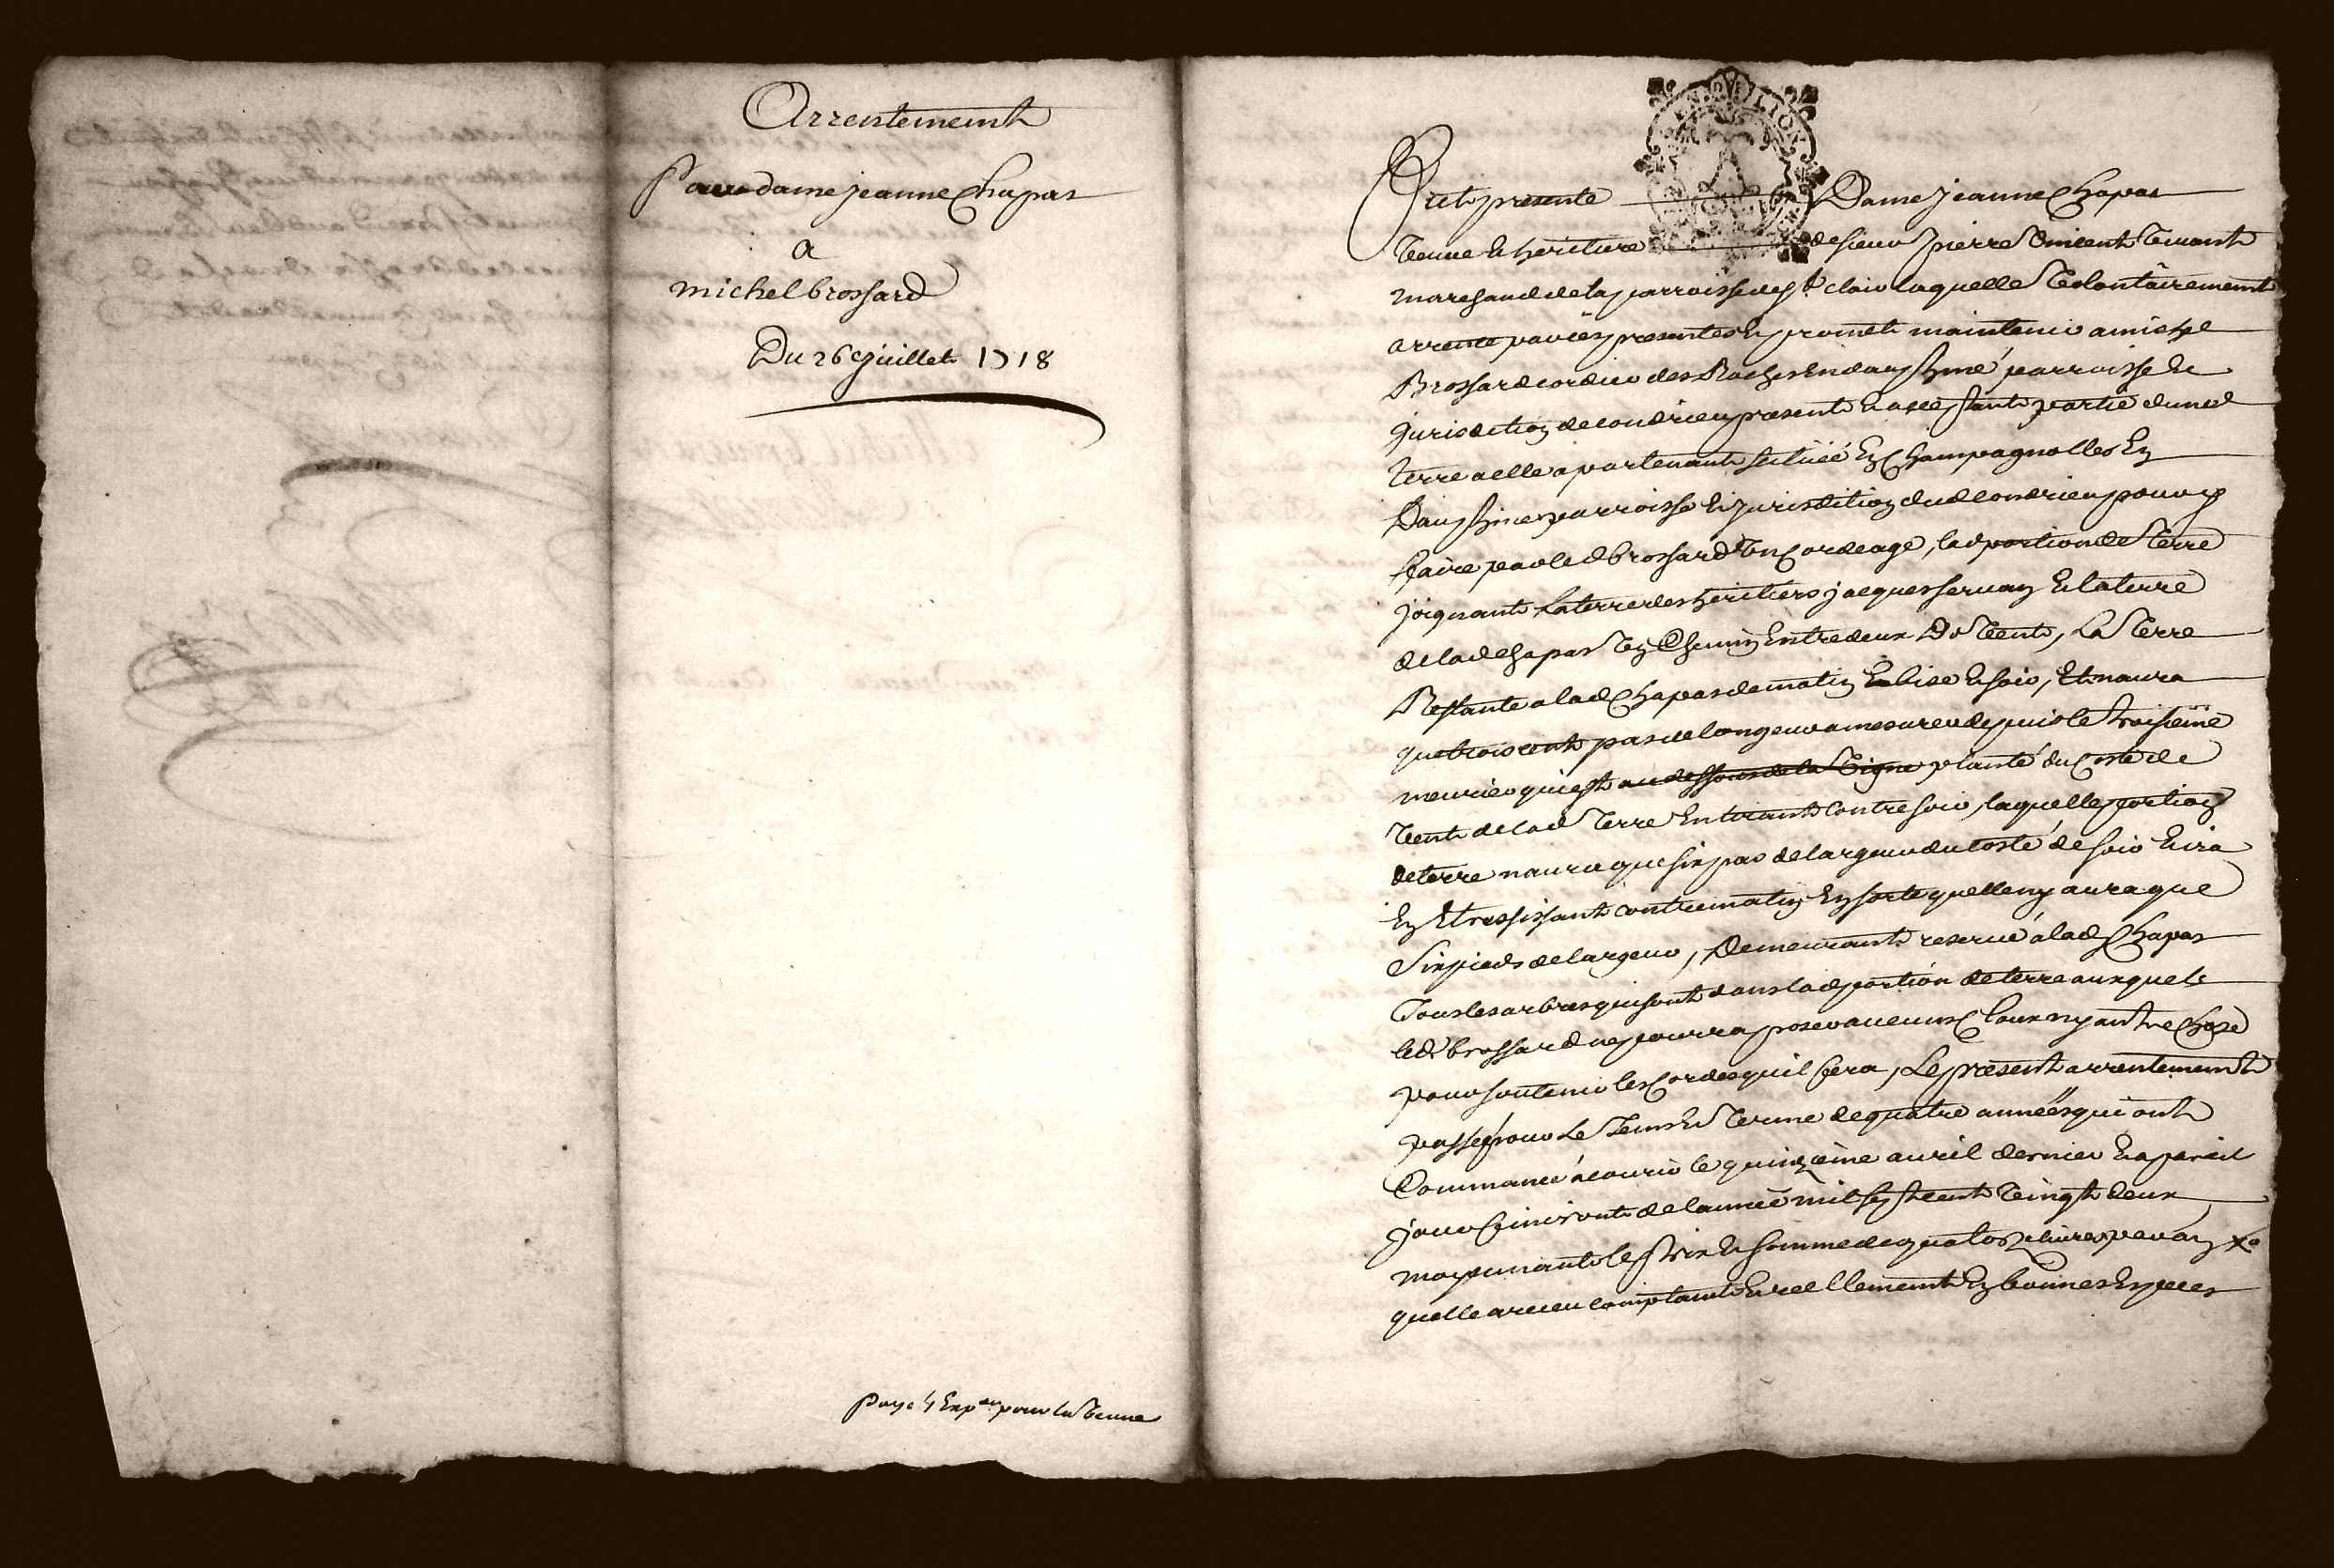 Arrentement
Par dame jeanne Chapas
a
michel brossard
Du 26 juillet 1718
Payé Expon pour la veuve
Fut presente Dame jeanne Chapas
veuve et heritiere de sieur pierre vivant
marchand de la parroisse de st clair laquelle volontairement
arrente par ces presentes et promet maintenir a michel
Brossard cordier des Roches en dauphiné parroisse et
jurisdiction de condrieu present et acceptant partie dune
terre a elle apartenante scituéé En Champagnolles En
Dauphiné parroisse et jurisdiction dud condrieu pour y
faire par led brossard un Cordeage, lad portion de terre
joignant la terre des heritiers jacques servan Et la terre
de lad Chapas un Chemin Entredeux De vent, La terre
Restante a lad Chapas de matin Et bise Et soir, Et naura
que trois cents pas de longeur a mesurer depuis le troisieme
meurier quiest au dessous de la vigne planté du Costé de
vent de lad terre En tirant Contre soir, laquelle portion
de terre naura que six pas de largeur du costé de soir Et ira
En Etressissant contre matin En sorte quelle ny aura que
Six pieds de largeur, Demeurant reservé á lad Chapas
Tous les arbres qui sont dans lad portion de terre auxquels
led brossard ne pourra poser aucuns Cloux ny autre Chose
pour soutenir les Cordes quil fera, Le present arrentement
passé pour Le tems Et terme de quatre annéés qui ont
Commancé á courir le quinzieme avril dernier Et a pareil
jour finiront de lannéé mil sept cent vingt deux
moyennant le prix Et somme de quatorze livres par an
quelle a receu comptant Et reellement En bonnes Especes